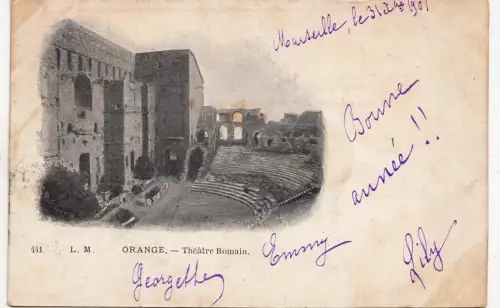 Marseille, le 31 Xbre 1901
Bonne
année!!
441 L. M. ORANGE. — Théâtre Romain.
Georgette
Emmy
Lily